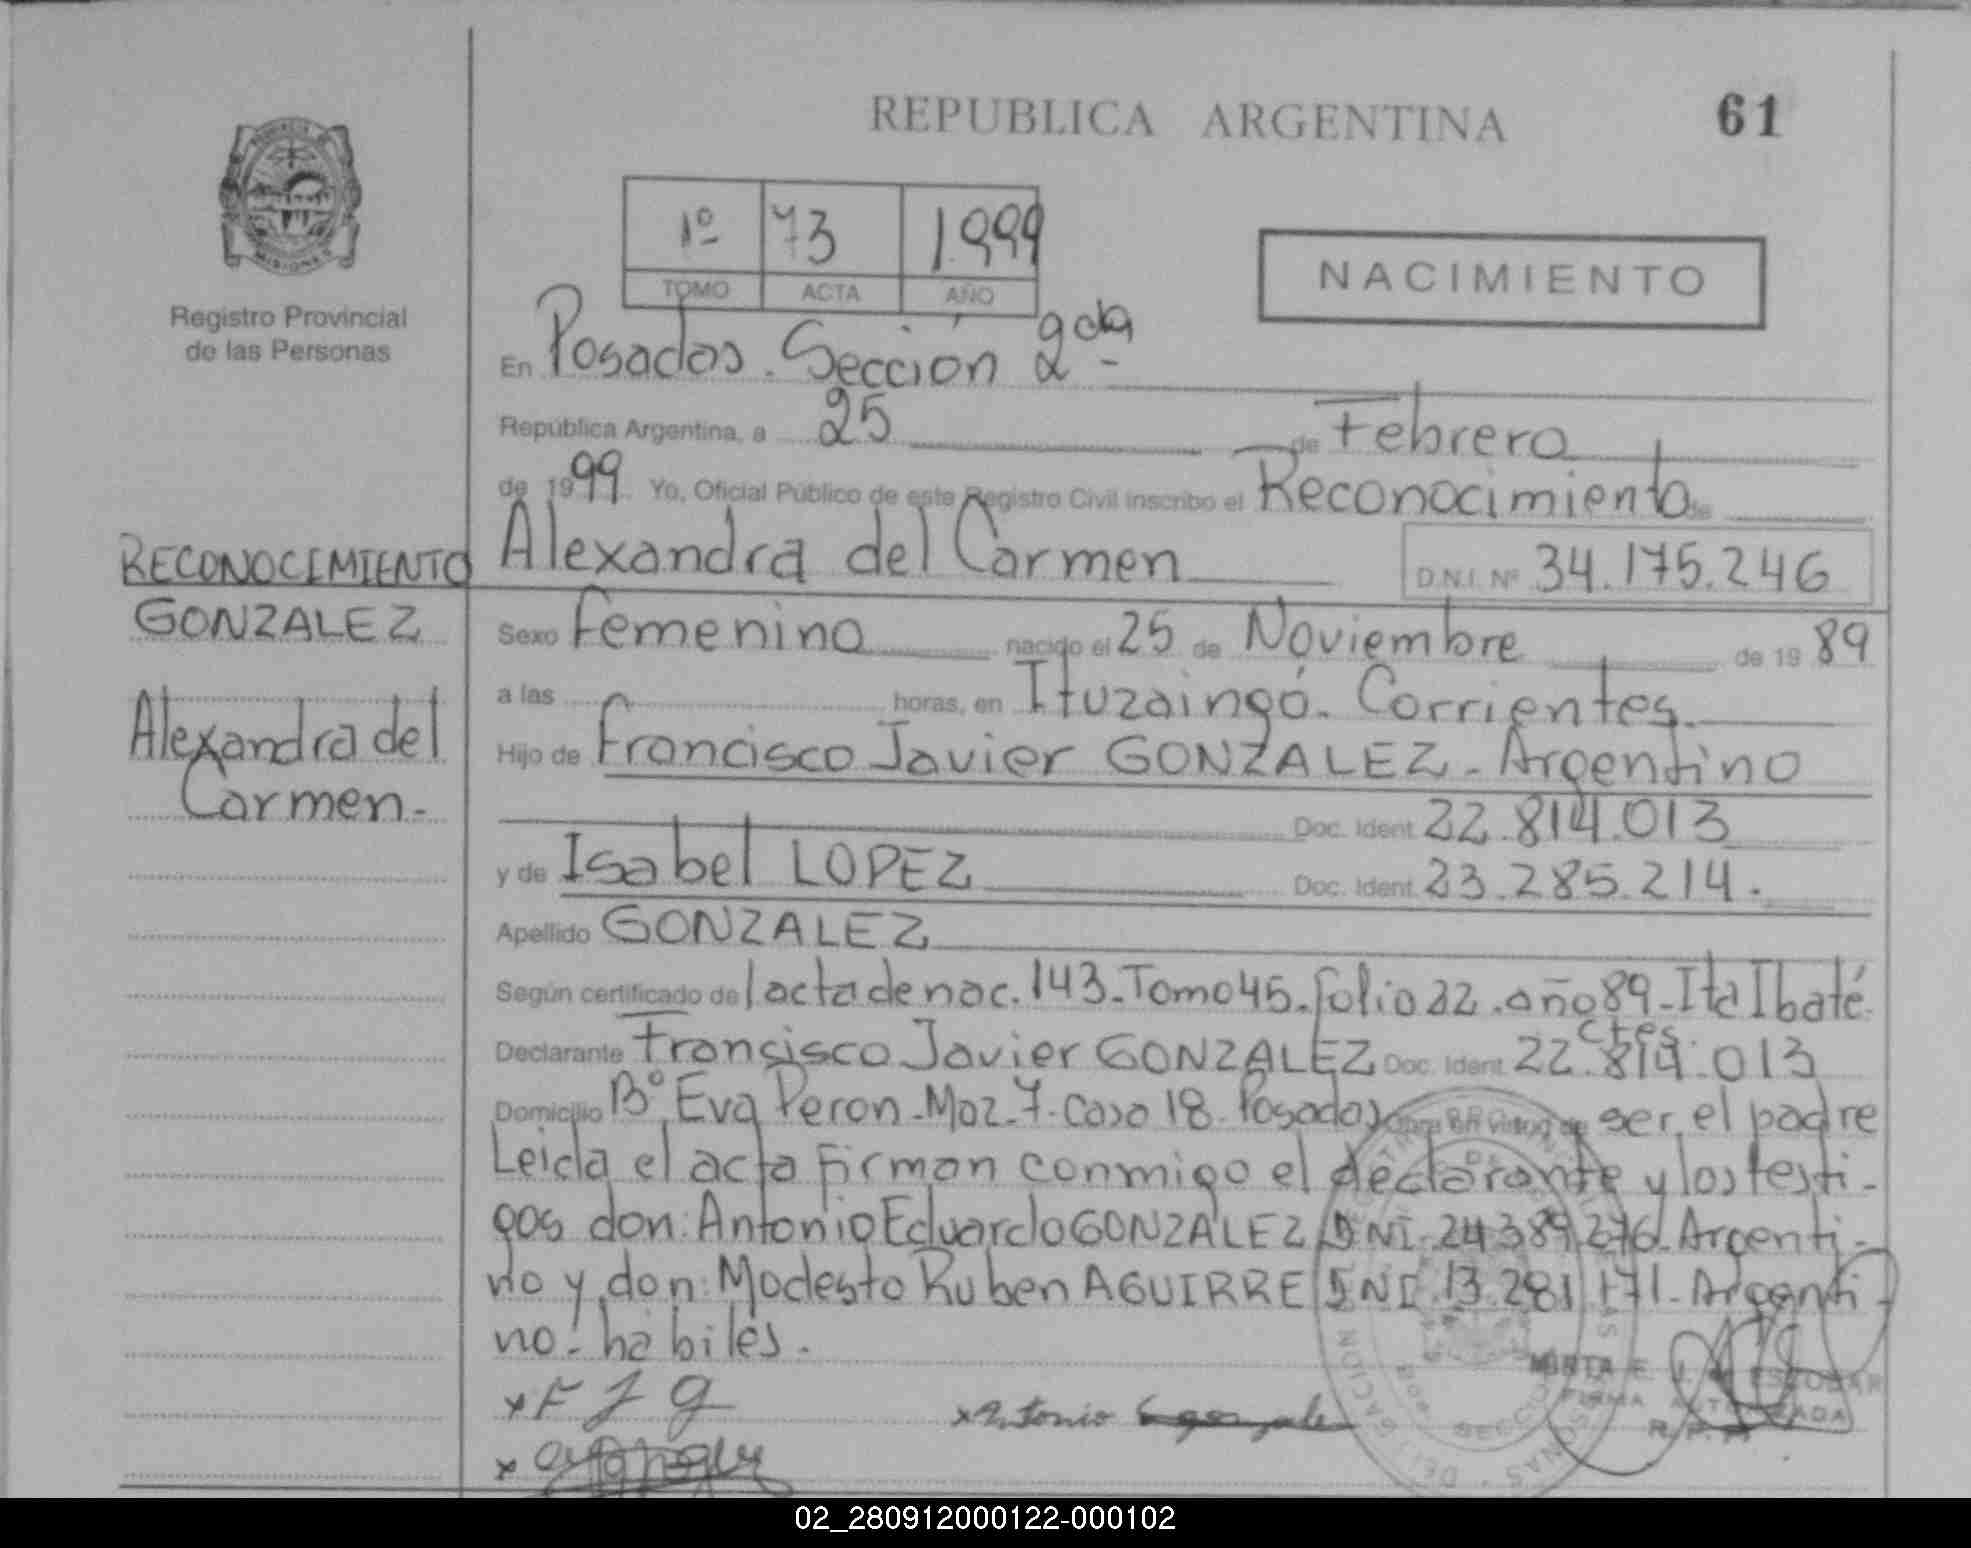 REPUBLICA ARGENTINA
61
1º 73 1.999
TOMO ACTA AÑO
NACIMIENTO
MISIONES
Registro Provincial
de las Personas
En Posadas. Sección 2da -
República Argentina, a 25 de Febrero
de 1999 Yo, Oficial Público de este Registro Civil inscribo el Reconocimiento de
RECONOCIMIENTO
Alexandra del Carmen D.N.I. Nº 34.175.246
GONZALEZ
Alexandra del
Carmen-
Sexo Femenino nacido el 25 de Noviembre de 1989
a las horas, en Ituzaingó. Corrientes.
Hijo de Francisco Javier GONZALEZ - Argentino
Doc. Ident. 22.814.013
y de Isabel LOPEZ Doc. Ident. 23.285.214.
Apellido GONZALEZ
Según certificado de l acta de nac. 143-Tomo 45-folio 22-año 89-Ita Ibaté
Ctes.
Declarante Francisco Javier GONZALEZ Doc. Ident. 22.814.013
Domicilio Bº Eva Peron-Maz-7-casa 18-Posadas Obra en virtud de ser el padre
Leida el acta firman conmigo el declarante y los testi-
gos don: Antonio Eduardo GONZALEZ DNI-24389276-Argenti-
no y don: Modesto Ruben AGUIRRE DNI.13.281.171-Argenti-
no- habiles.
x F J G
x Antonio
MIRTA E. ESCOBAR
FIRMA AUTORIZADA
R.P.P.
02_280912000122-000102